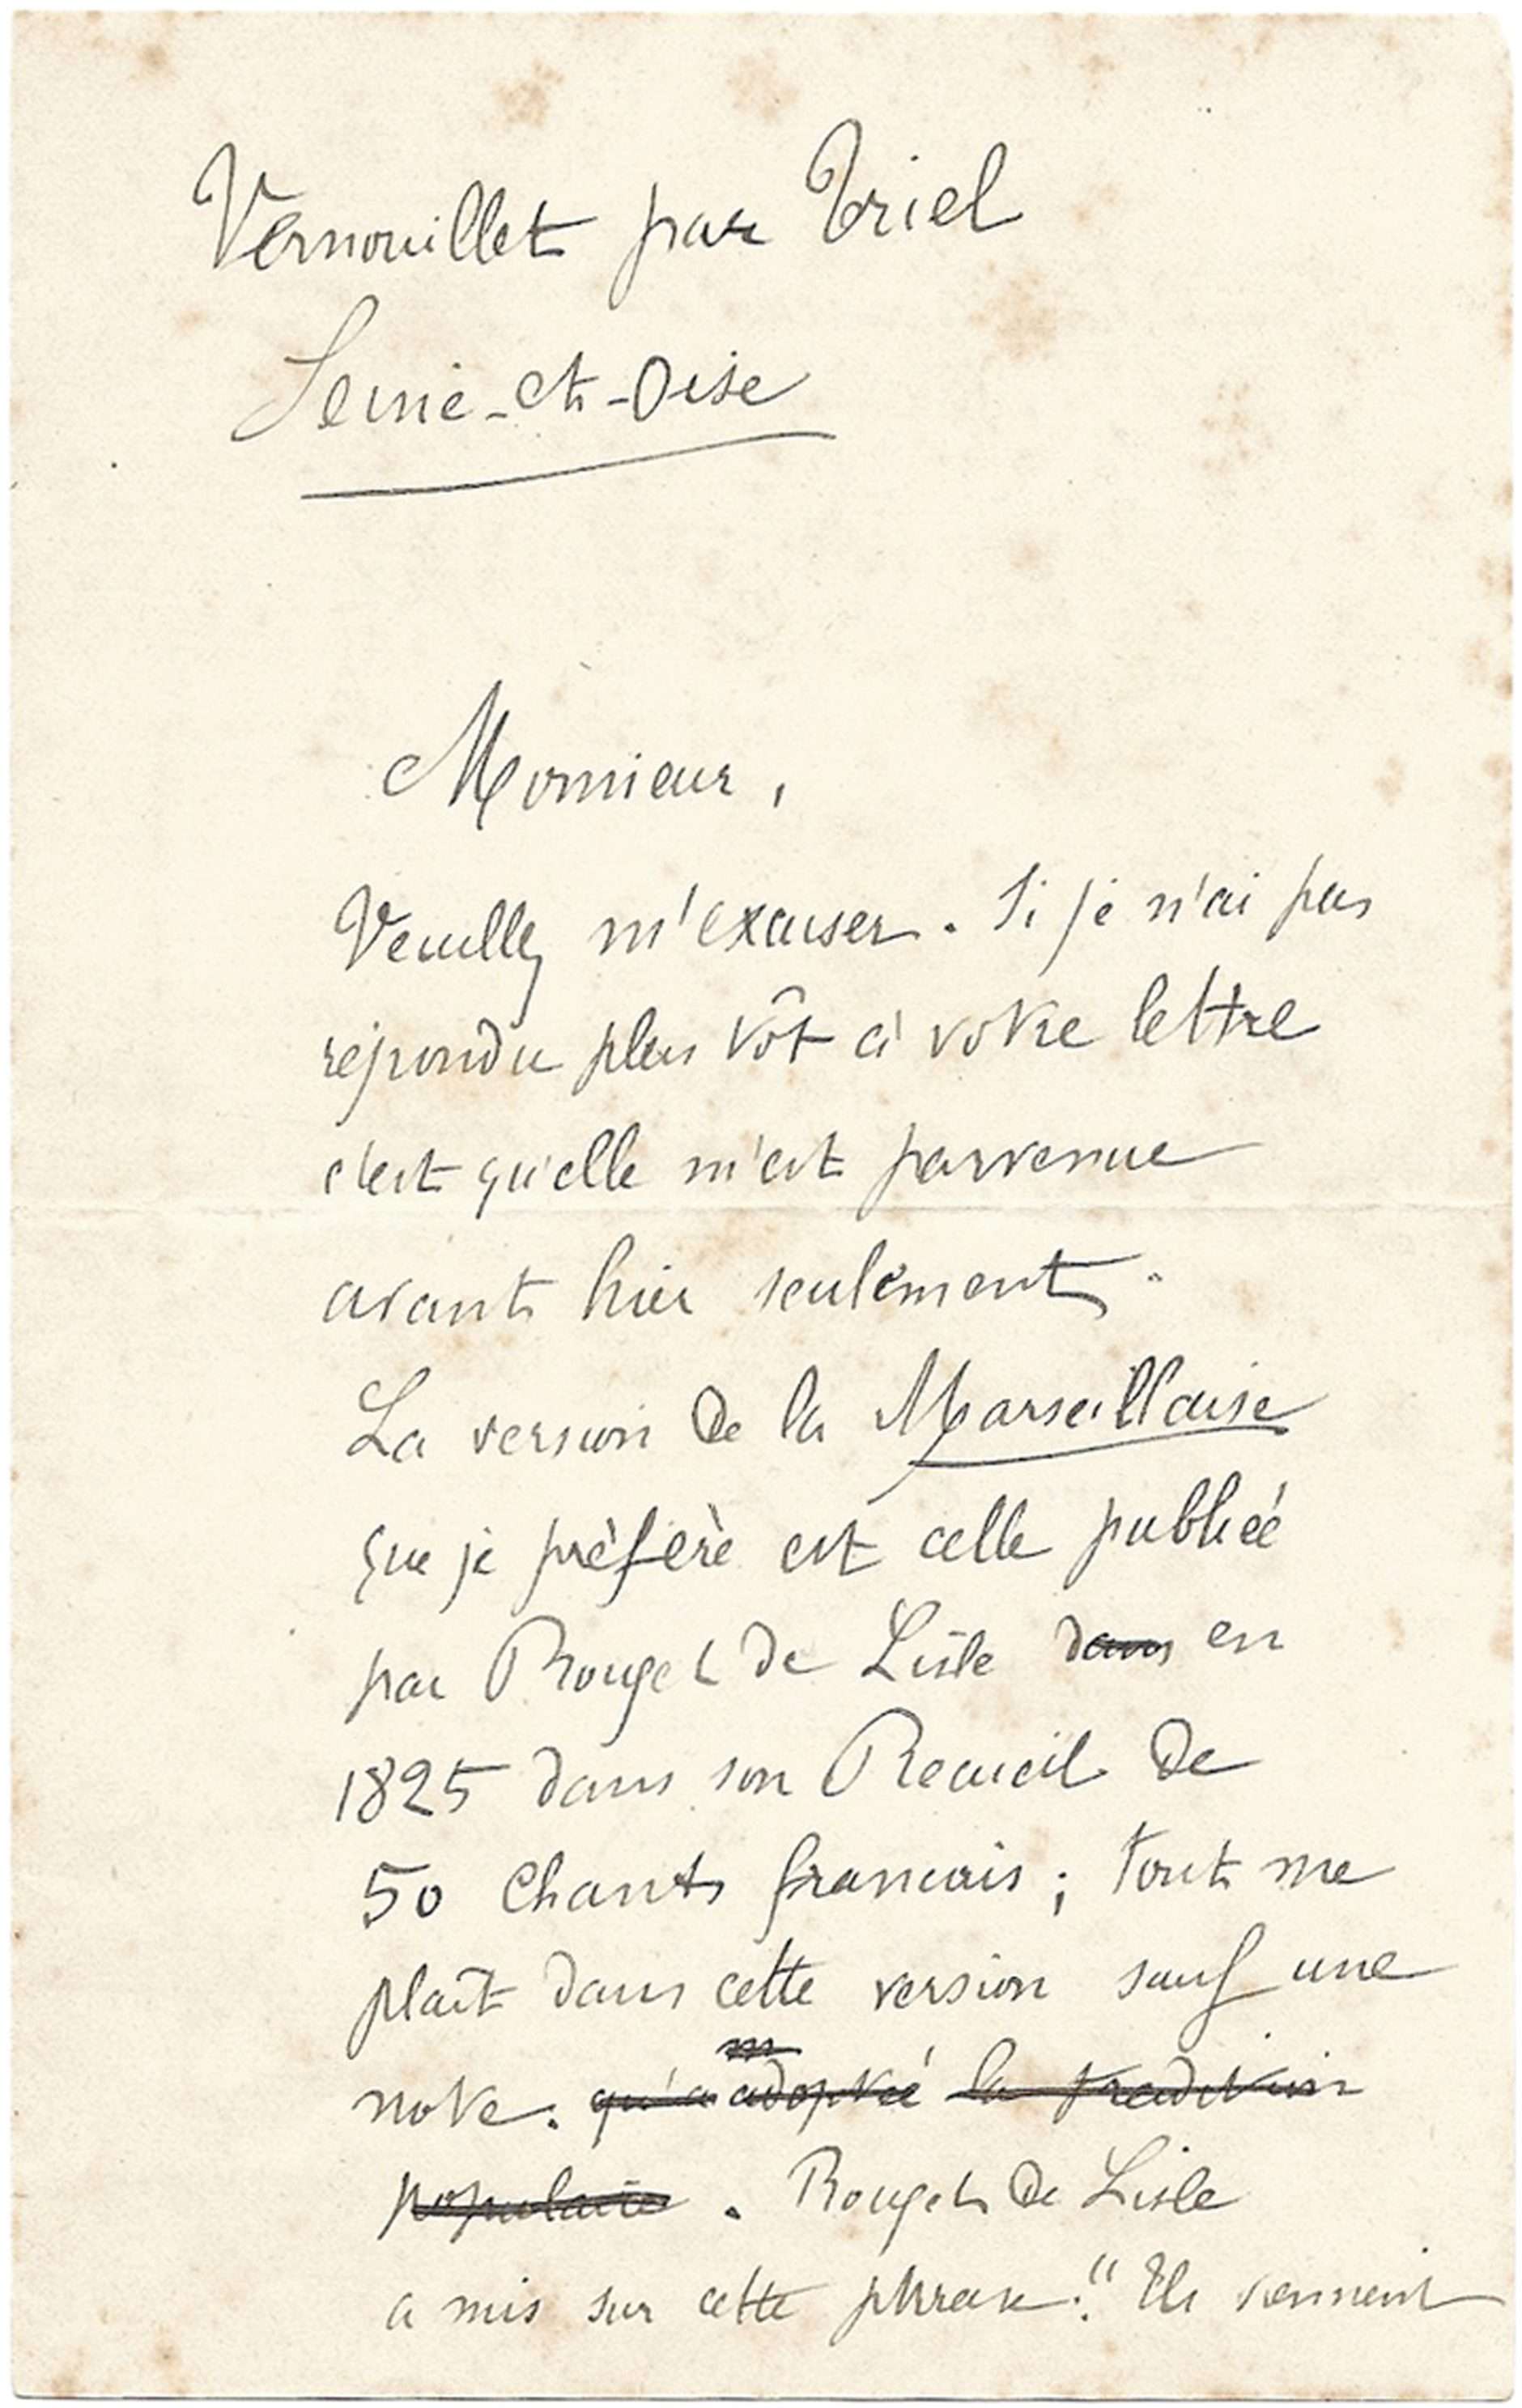 Vernouillet par Triel
Seine-et-Oise
Monsieur,
Veuillez m'excuser. Si je n'ai pas
répondu plus tôt à votre lettre
c'est qu'elle m'est parvenue
avant hier seulement.
La version de la Marseillaise
que je préfère est celle publiée
par Rouget de Lisle dans en
1825 dans son Recueil de
50 Chants francais ; tout me
plaît dans cette version sauf une
note. qu'a adoptée la tradition
populaire . Rouget de Lisle
a mis sur cette phrase : " Ils viennent